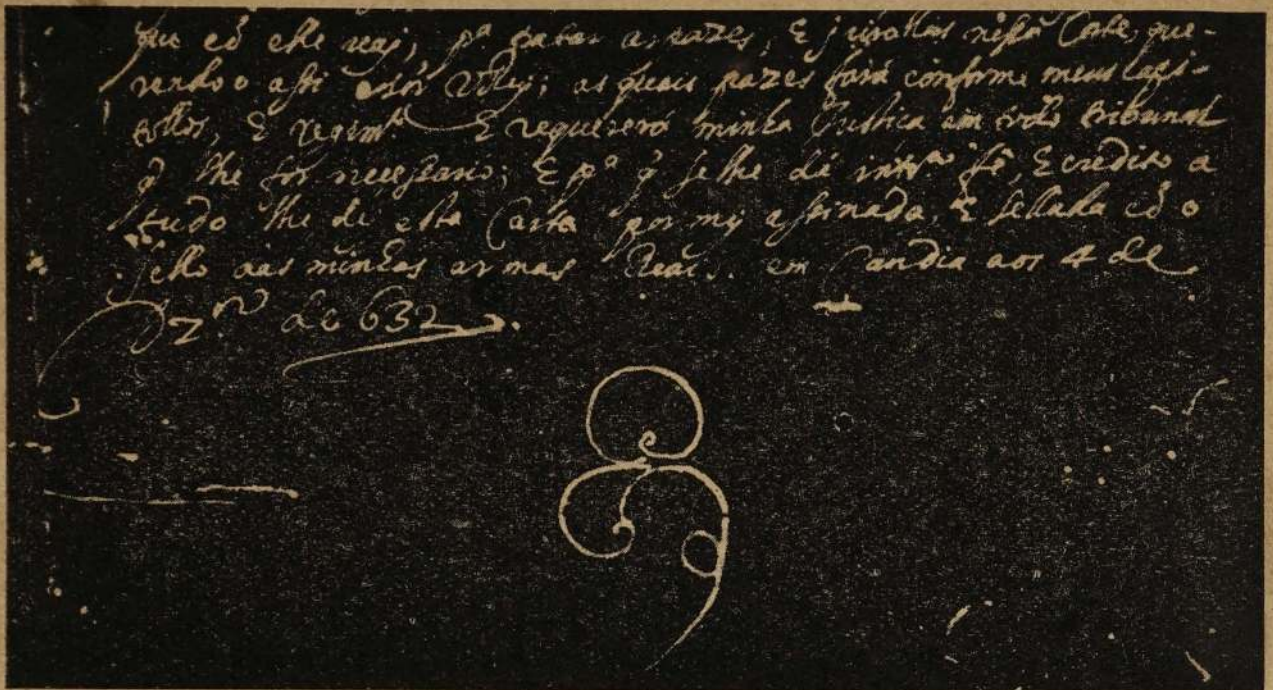 que cõ elle vay, pª as pazes, E jurallas nessa Corte, que-
rendo o assi ViRey; as quais pazes fará conforme meus Capi-
tollos, E regimtº E requererá minha Justica em todo tribunal
q̃ lhe for necessario; E pª q̃ se lhe dé intrª fé, E credito a
tudo lhe de esta Carta por my assinada, E sellada cõ o
sello das minhas armas Reais. em Candia aos 4 de
de 632